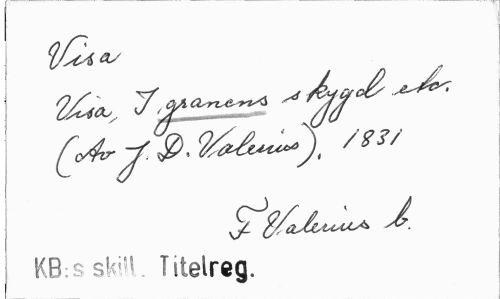 Visa
Visa, I granens skygd etc.
(Av J. D. Valerius). 1831
F Valerius b.
KB:s skill. Titelreg.